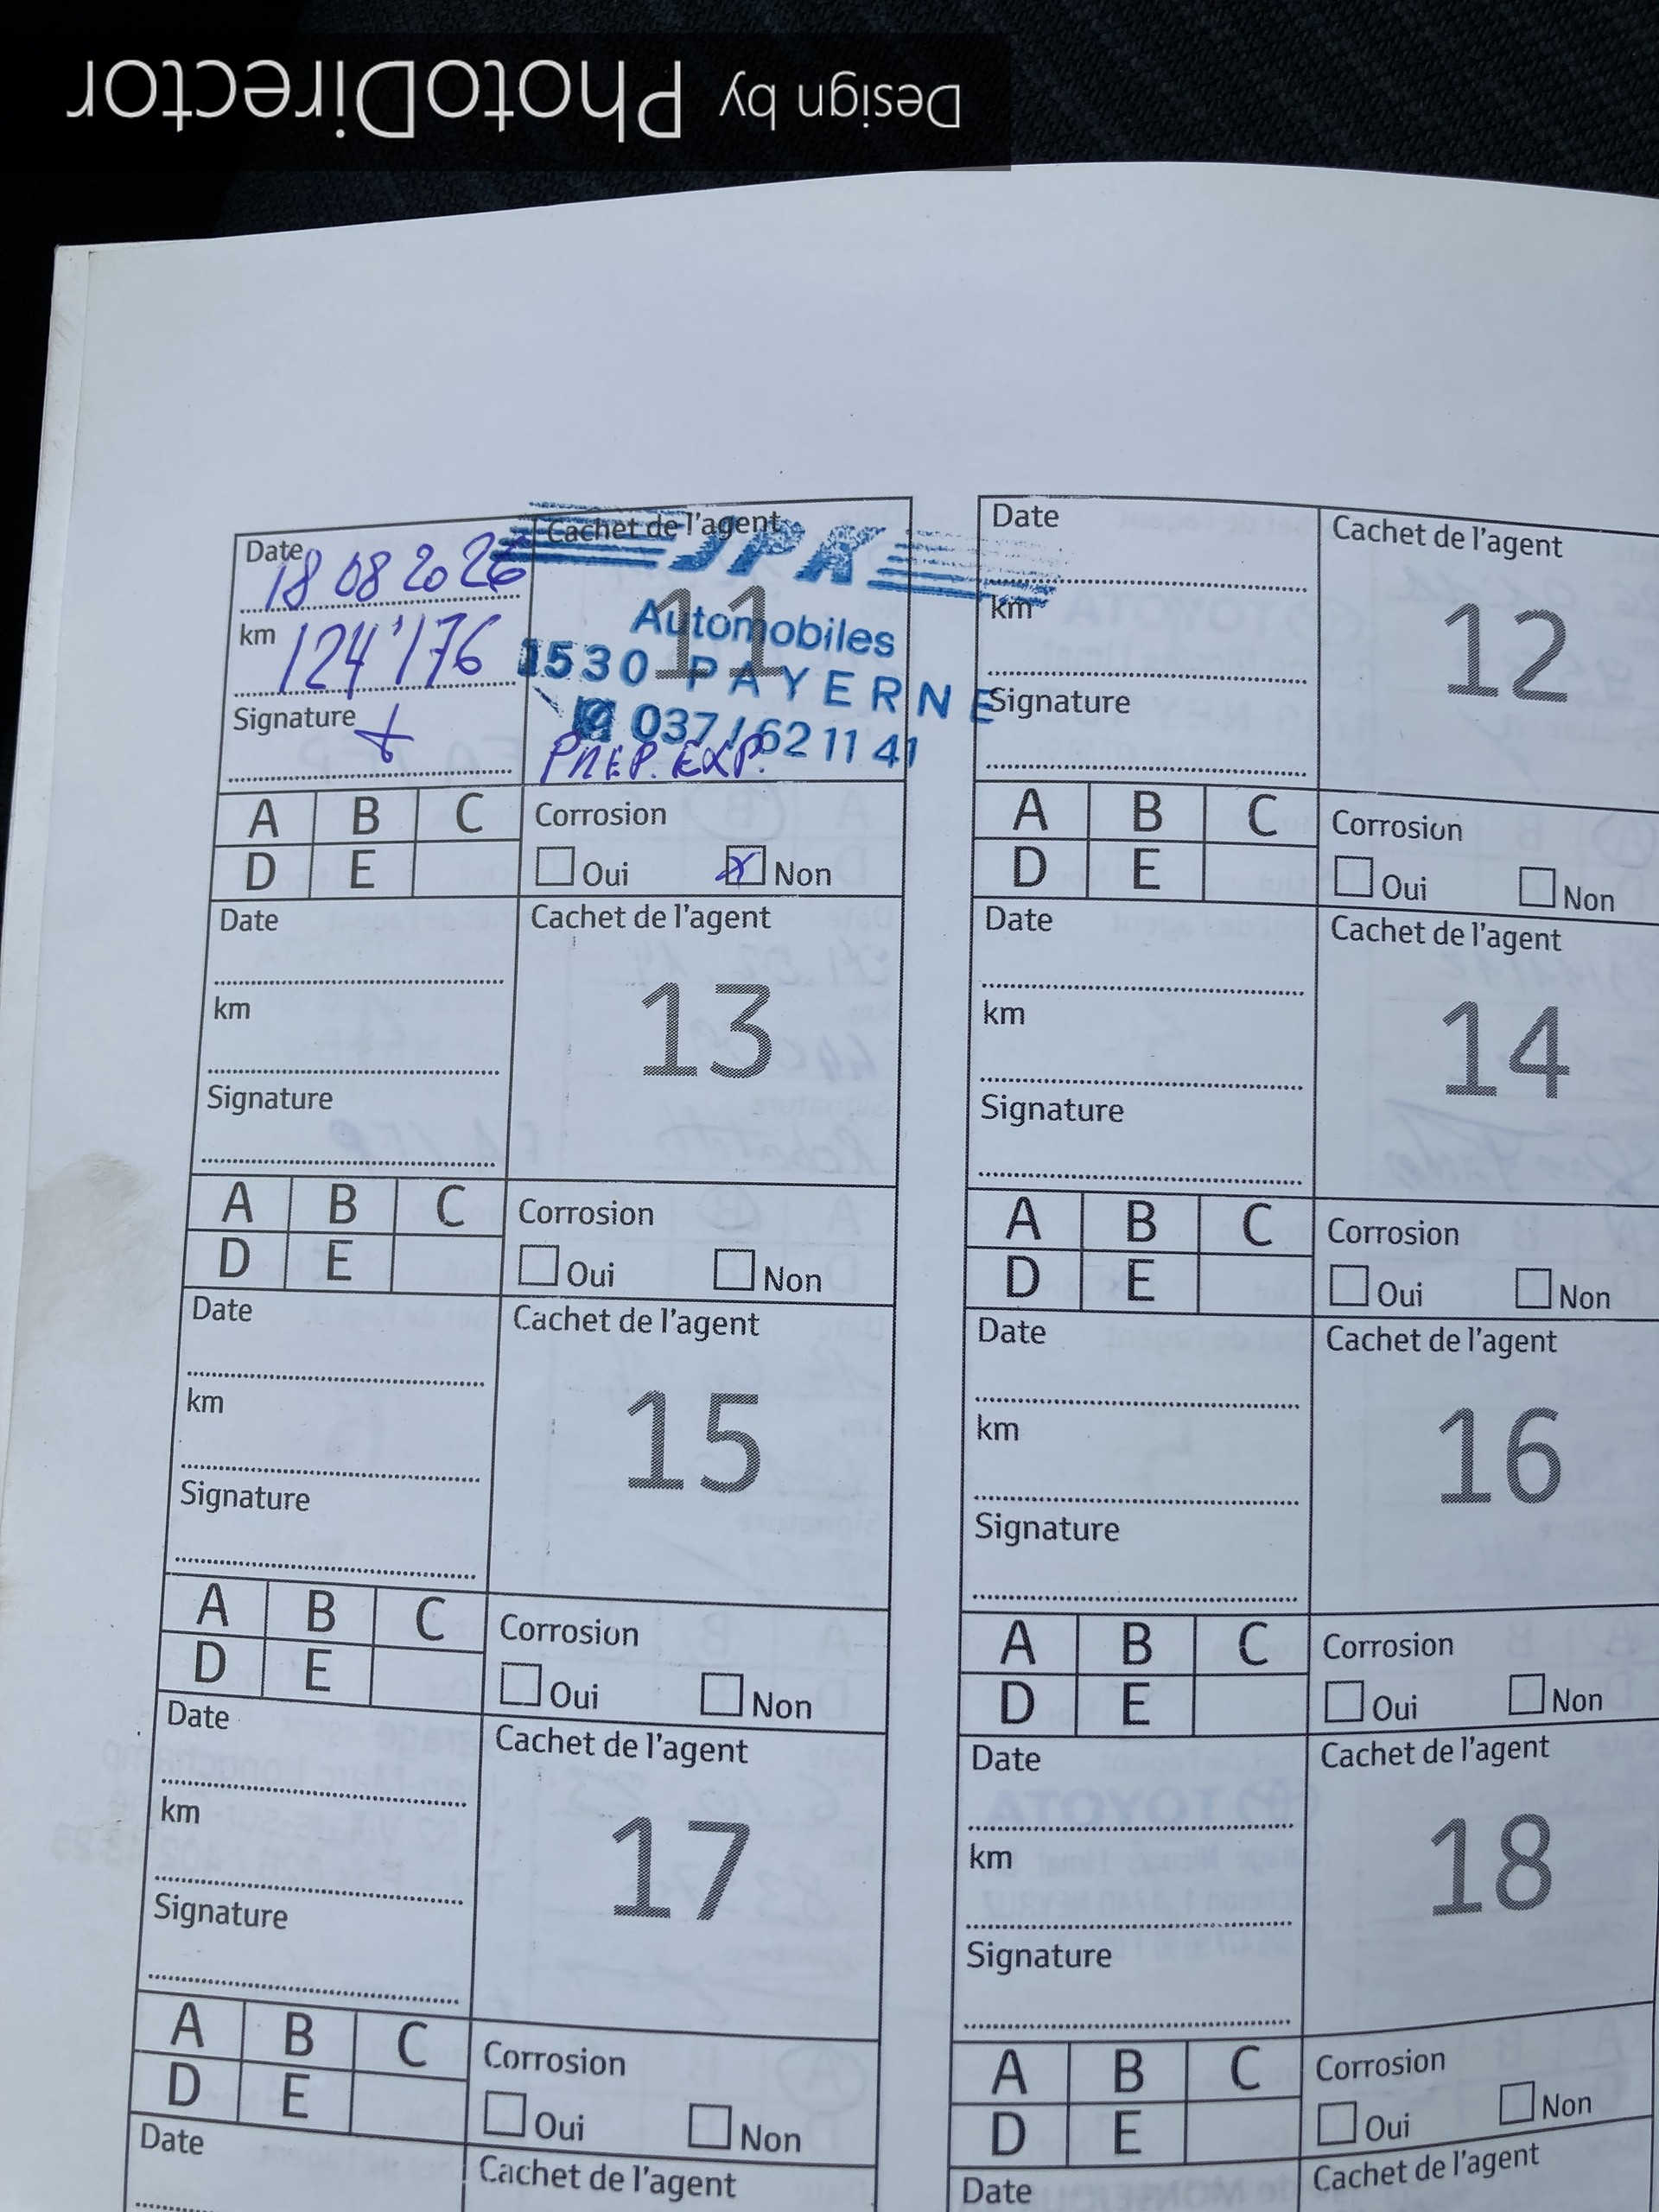 Design by PhotoDirector
Date 18 08 2026
km 124'176
Signature
Cachet de l'agent
11
JPK
Automobiles
1530 PAYERNE
037 / 62 11 41
PREP. EXP.
A B C
D E
Corrosion
Oui Non
Date
km
Signature
Cachet de l'agent
12
A B C
D E
Corrosion
Oui Non
Date
km
Signature
Cachet de l'agent
13
A B C
D E
Corrosion
Oui Non
Date
km
Signature
Cachet de l'agent
14
A B C
D E
Corrosion
Oui Non
Date
km
Signature
Cachet de l'agent
15
A B C
D E
Corrosion
Oui Non
Date
km
Signature
Cachet de l'agent
16
A B C
D E
Corrosion
Oui Non
Date
km
Signature
Cachet de l'agent
17
A B C
D E
Corrosion
Oui Non
Date
km
Signature
Cachet de l'agent
18
A B C
D E
Corrosion
Oui Non
Date
Cachet de l'agent
Date
Cachet de l'agent